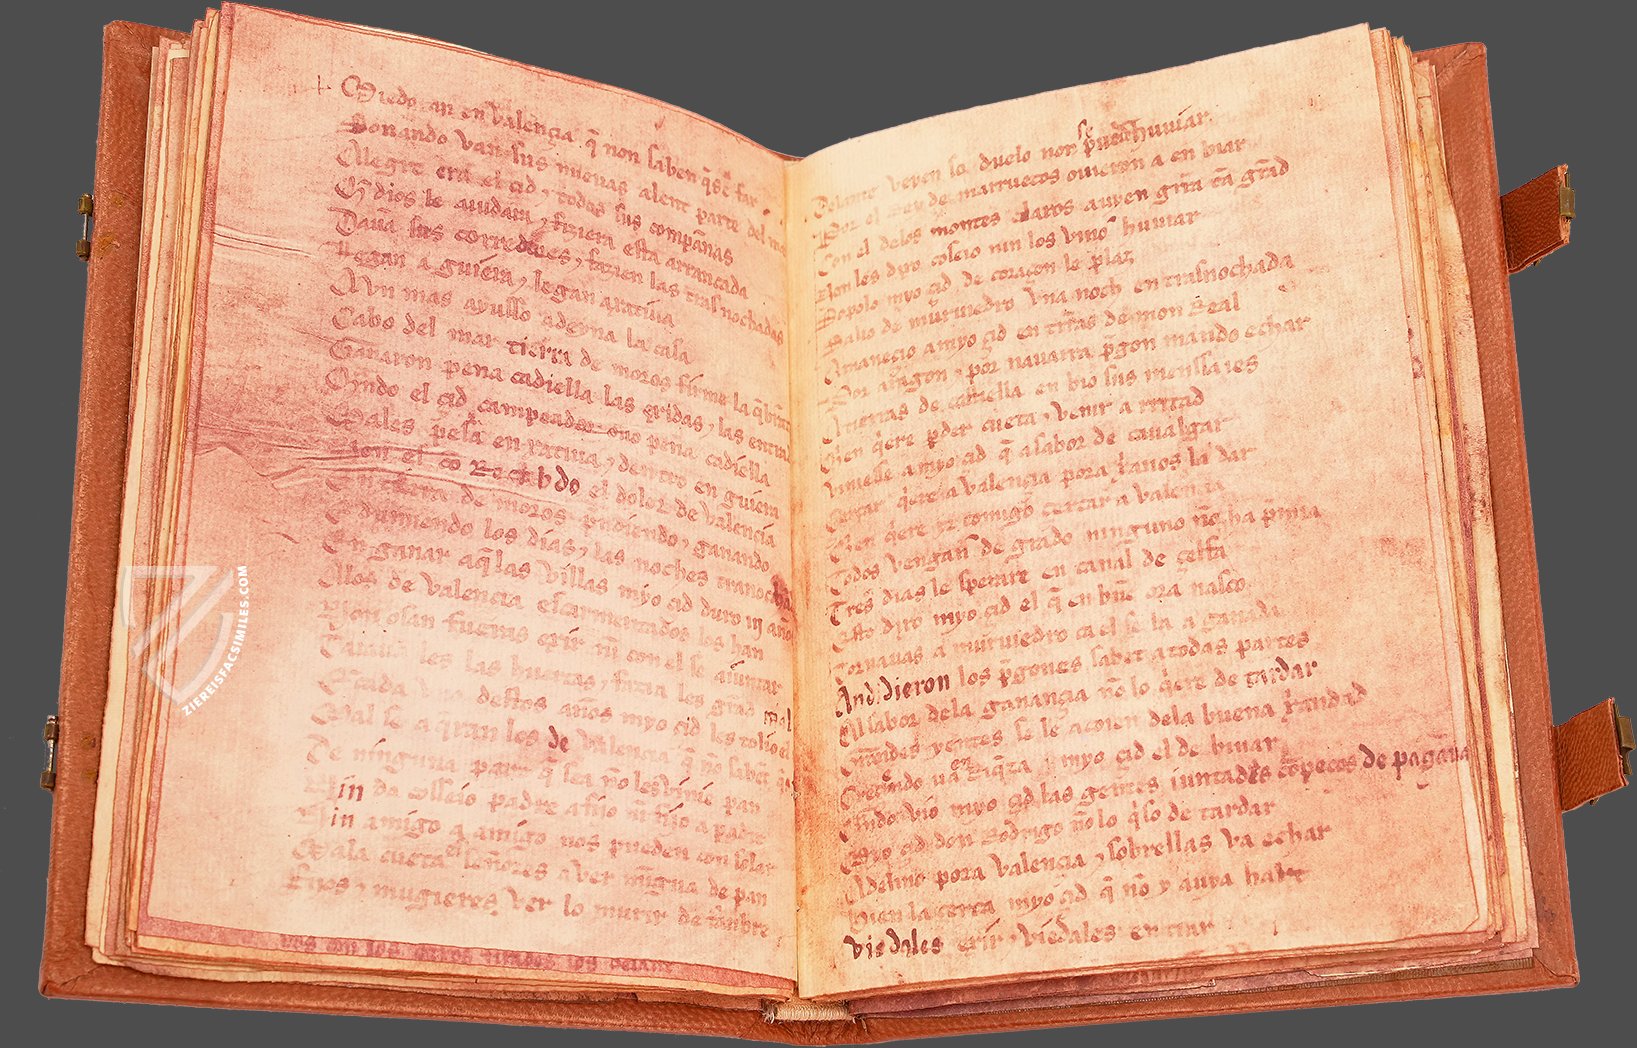 Miedo an en valençia q̃ non saben q̃ se far
Sonando van sus nueuas alent parte del mar
Alegre era el çid ⁊ todas sus compañas
Q̃ dios le aiudara ⁊ fiziera esta arrancada
Dauã sus corredores ⁊ fazien las trasnochadas
Legan a guiera ⁊ legan a xatiua
Avn mas ayusso a deyna la casa
Cabo del mar tierra de moros firme la q̃branta
Ganaron pena cadiella las exidas ⁊ las entradas
Quãdo el çid campeador ouo pena cadiella
Males pesa en xatiua ⁊ dentro en guiera
Non es cõ recabdo el dolor de valencia
En tierra de moros prendiendo ⁊ ganando
E durmiendo los dias ⁊ las noches tranochando
En ganar aq̃las villas myo çid duro iij años
Alos de valencia escarmentados los han
Non osan fueras exir nĩ con el se aiuntar
Taiaua les las huertas ⁊ fazia les grãd mal
En cada vno destos años myo çid les tolio el
Mal se aq̃xan los de valençia q̃ nõ sabẽt q̃s
De ninguna part q̃ sea nõ les vinie pan
Nin da cõsseio padre a fijo nĩ fijo a padre
Nin amigo a amigo nos pueden consolar
Mala cueta es señores aver mĩgua de pan
Fijos ⁊ mugieres ver lo murir de fãnbre
Delante veyen so duelo non se pueden huuiar
Por el rey de marruecos ouieron a enbiar
Con el delos montes claros auyen guerra tã grãd
Non les dixo coseio nin los vino huuiar
Sopolo myo çid de coraçon le plaz
Salio de muruiedro vna noch en trasnochada
Amaneçio a myo çid en tr̃ras de mon Real
Por aragon ⁊ por nauarra pregon mando echar
A tierras de castiella enbio sus menssaies
Quien q̃ere perder cueta ⁊ venir a rritad
Viniesse a myo çid q̃ a sabor de caualgar
Çercar q̃ere a valencia pora xr̃anos la dar
Quien q̃ere yr comigo çercar a valencia
Todos vengan de grado ninguno nõ ha premia
Tres dias le sperare en canal de çelfa
Esto dixo myo çid el q̃ en buẽ ora nasco
Tornauas a muruiedro ca el se la a ganada
Andidieron los p̃gones sabet a todas partes
Al sabor dela ganançia nõ lo q̃ere de tardar
Grandes yentes se le acoien dela buena xr̃andad
Creçiendo ua en riq̃za myo çid el de biuar
Quãdo vio myo çid las gentes iuntadas cõpeços de pagaua
Myo çid don Rodrigo nõ lo q̃so de tardar
Adelino pora valencia ⁊ sobrellas va echar
Bien la çerca myo çid q̃ nõ y auya hart
Viedales exir ⁊ viedales entrar
ZIEREISFACSIMILES.COM